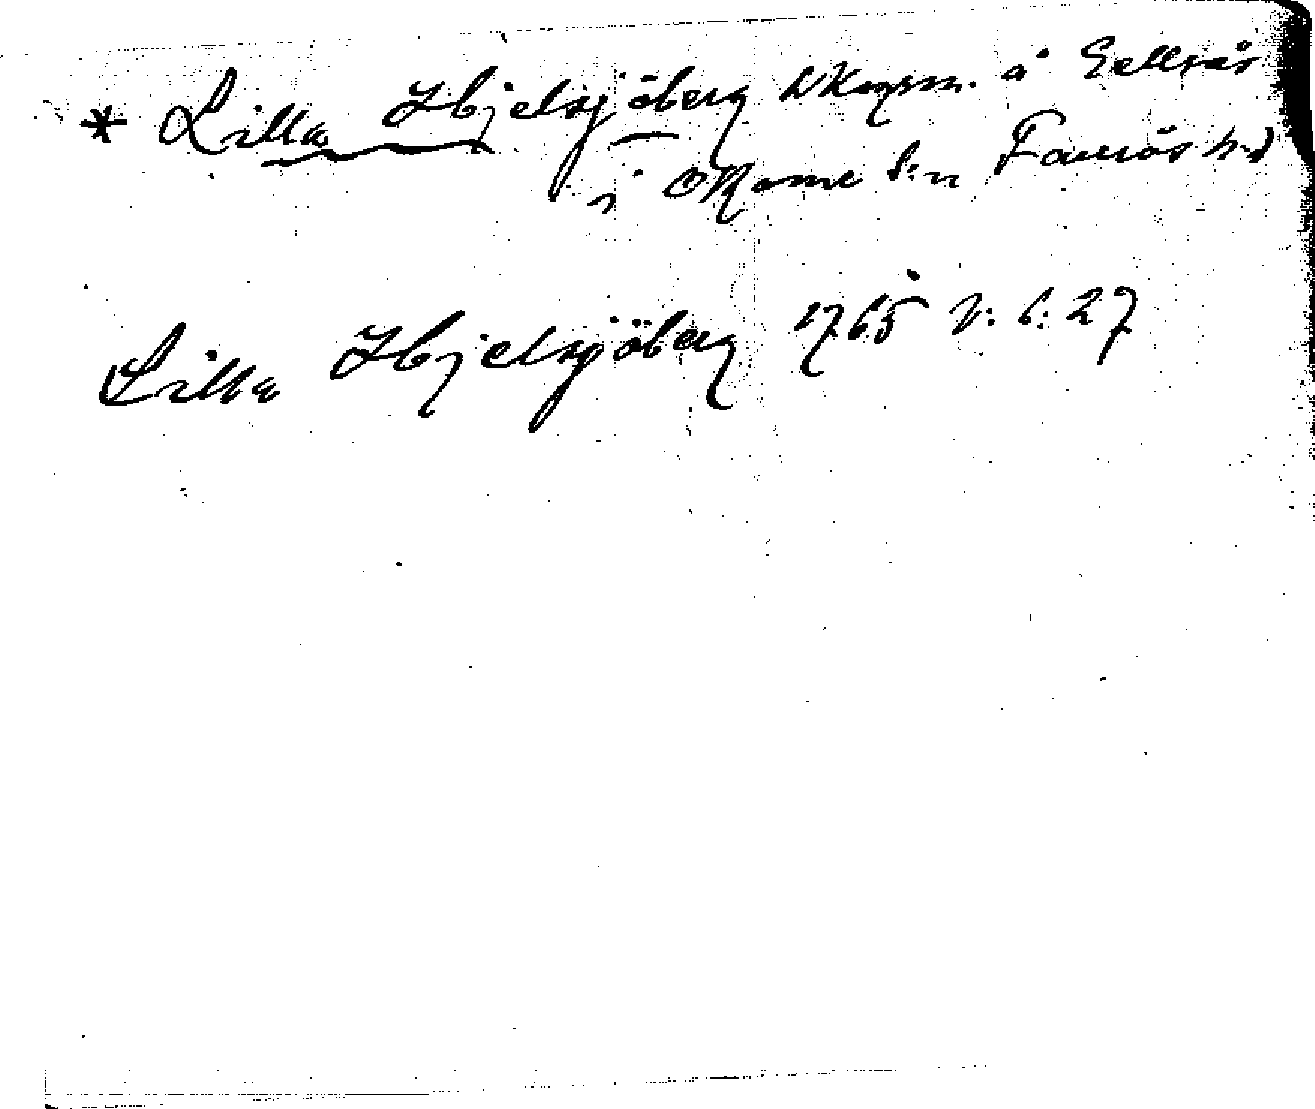 * Lilla Hjelsjöberg bKumsm. å Gellsås
i Okome s:n Faurås h-d
Lilla Hjelsjöberg 1765 V: 6: 27